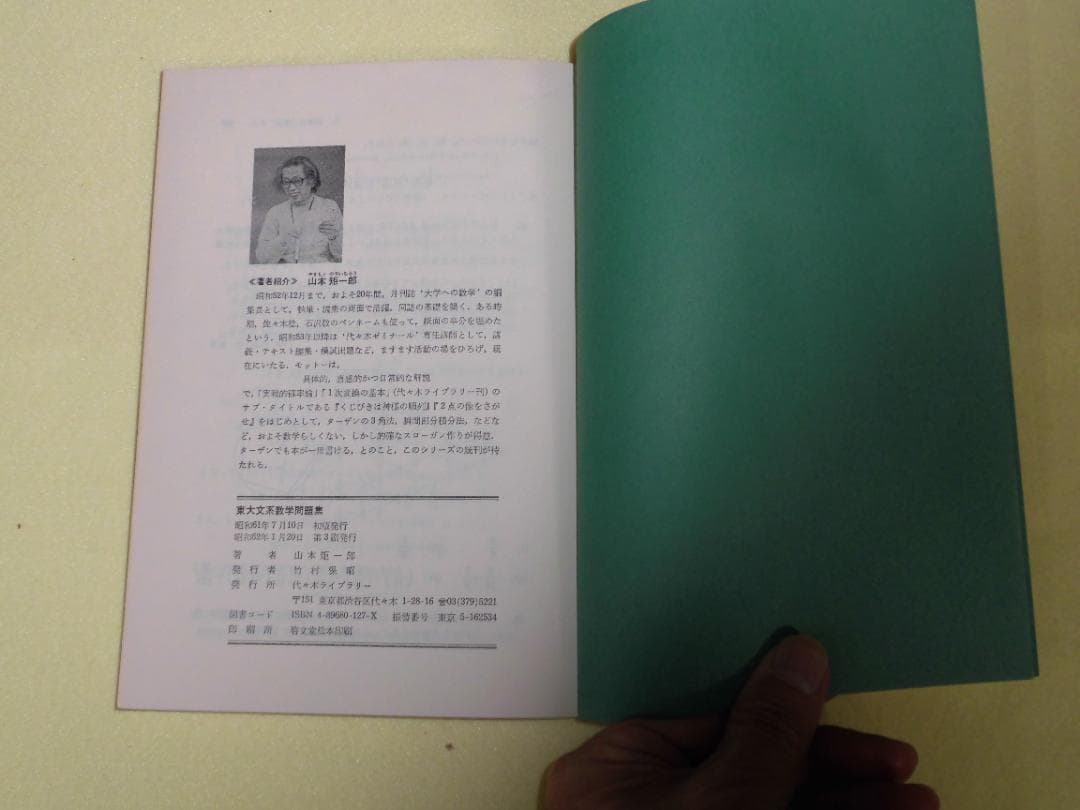 やまもと のりいちろう
≪著者紹介≫ 山本 矩一郎
昭和52年12月まで,およそ20年間,月刊誌‘大学への数学’の編
集長として,執筆・編集の両面で活躍,同誌の基礎を築く.ある時
期,佐々木稔,石沢敏のペンネームも使って,紙面の半分を埋めた
という.昭和53年以降は‘代々木ゼミナール’専任講師として,講
義・テキスト編集・模試出題など,ますます活動の場をひろげ,現
在にいたる.モットーは,
具体的,直感的かつ日常的な解説
で,「実戦的確率論」「1次変換の基本」(代々木ライブラリー刊)の
サブ・タイトルである『くじびきは神様の順列』『2点の像をさが
せ』をはじめとして,ターザンの3角法,瞬間部分積分法,などな
ど,およそ数学らしくない,しかし的確なスローガン作りが得意.
ターザンでも本が一冊書ける,とのこと,このシリーズの続刊が待
たれる.
東大文系数学問題集
昭和61年7月10日 初版発行
昭和62年1月20日 第3刷発行
著者 山本矩一郎
発行者 竹村保昭
発行所 代々木ライブラリー
〒151 東京都渋谷区代々木 1-28-16 ☎03(379)5221
図書コード ISBN 4-89680-127-X 振替番号 東京 5-162534
印刷所